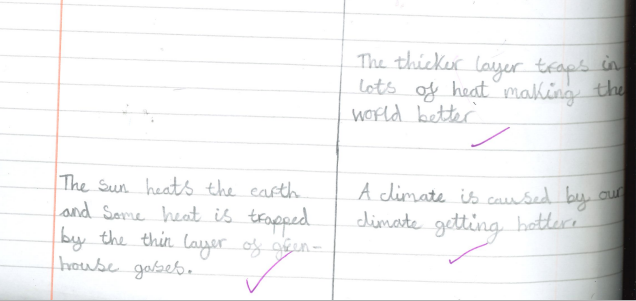 The thicker layer traps in
lots of heat making the
world better
The Sun heats the earth
and Some heat is trapped
by the thin layer of green-
house gases.
A climate is caused by our
climate getting hotter.